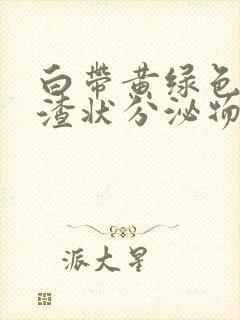 白带黄绿色
渣状分泌物
派大星